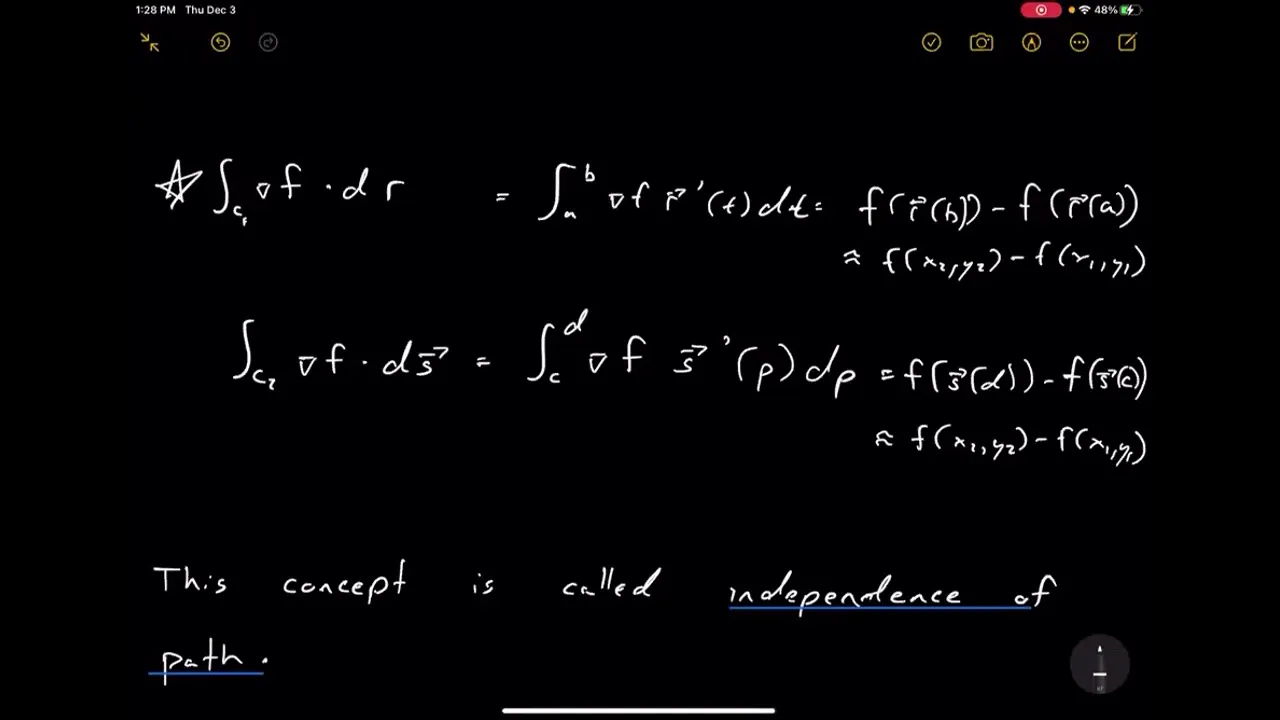 1:28 PM Thu Dec 3
48%
☆ ∫_{C₁} ∇f · dr = ∫_a^b ∇f r⃗'(t)dt = f(r⃗(b)) - f(r⃗(a))
≈ f(x₂,y₂) - f(x₁,y₁)
∫_{C₂} ∇f · ds⃗ = ∫_c^d ∇f s⃗'(p)dp = f(s⃗(d)) - f(s⃗(c))
≈ f(x₂,y₂) - f(x₁,y₁)
This concept is called independence of
path.